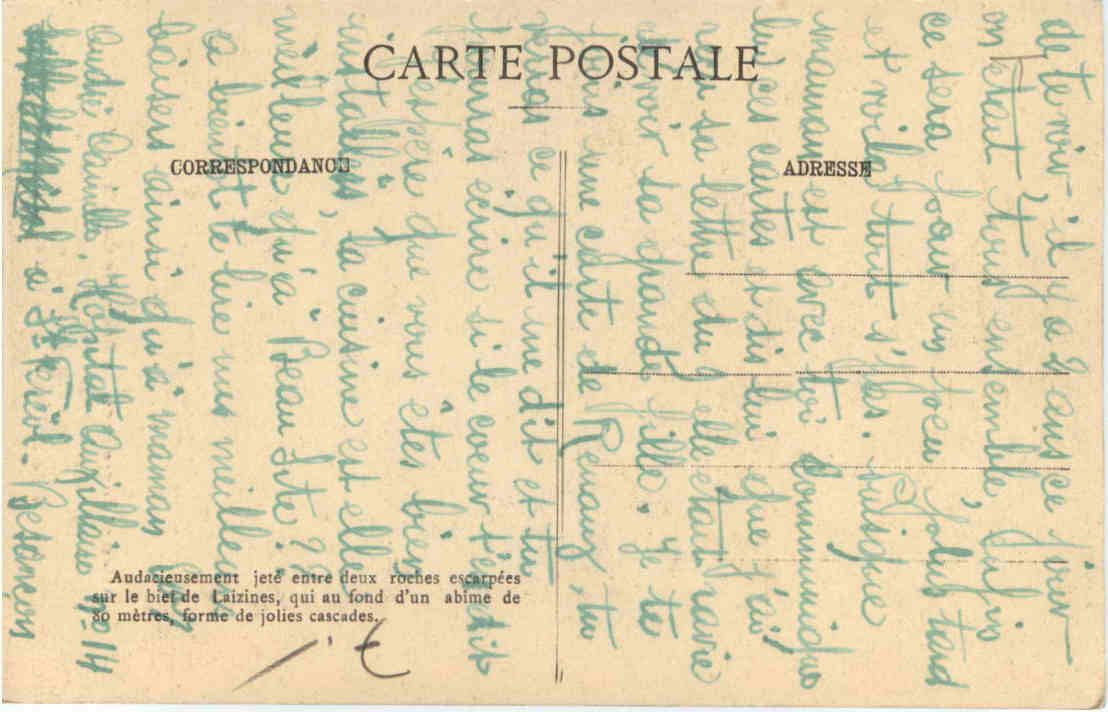 CARTE POSTALE
CORRESPONDANCE
ADRESSE
de te voir il y a 2 ans ce jour
on était tous enfin
ce sera pour un peu plus tard
et voilà tout s'
maman est avec toi Communique
lui ces cartes et dis lui que j'ai
sa lettre du elle était ravie
de voir sa grande fille. Je te
une carte de Renaux, tu
ce qu'il me dit et tu
écrire si le coeur t'en dit
J'espère que vous êtes bien
installées, la cuisine est elle
meilleure qu'à Beau Site??
à bientôt te lire mes meilleurs
baisers ainsi qu'à maman
André Camille. Hôpital Auxiliaire n° 14
à St Ferjeux. Besançon
Audacieusement jeté entre deux roches escarpées
sur le bief de Laizines, qui au fond d'un abime de
80 mètres, forme de jolies cascades.